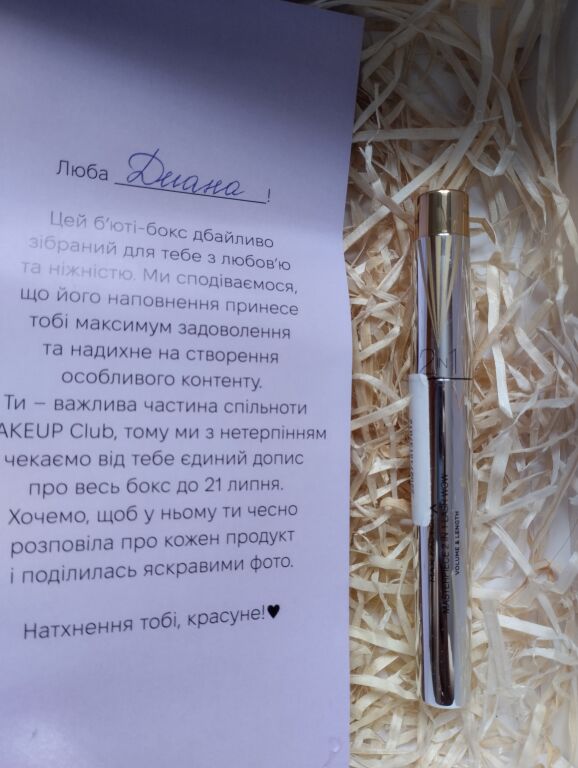 Люба Диана!
Цей б’юті-бокс дбайливо
зібраний для тебе з любов’ю
та ніжністю. Ми сподіваємося,
що його наповнення принесе
тобі максимум задоволення
та надихне на створення
особливого контенту.
Ти – важлива частина спільноти
AKEUP Club, тому ми з нетерпінням
чекаємо від тебе єдиний допис
про весь бокс до 21 липня.
Хочемо, щоб у ньому ти чесно
розповіла про кожен продукт
і поділилась яскравими фото.
Натхнення тобі, красуне!♥
2 IN 1
MASTERPIECE 2 IN 1 LASH WOW
VOLUME & LENGTH